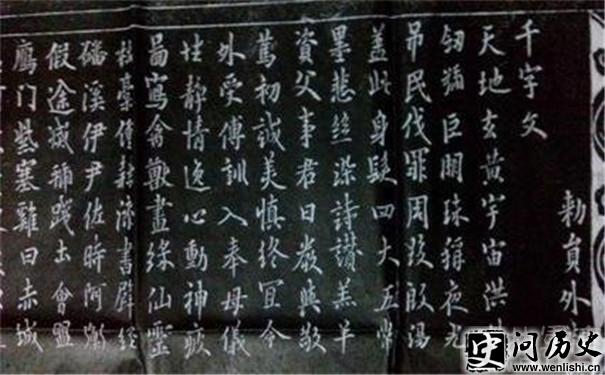 千字文
勅員外
天地玄黃宇宙洪
釼號巨闕珠稱夜光
弔民伐罪周發殷湯
盖此身髮四大五常
墨悲絲染詩讚羔羊
資父事君曰嚴與敬
篤初誠美慎終宜令
外受傅訓入奉母儀
性靜情逸心動神疲
啚寫禽獸畫綵仙靈
杜稾鍾隸漆書壁經
磻溪伊尹佐時阿衡
假途滅虢踐土會盟
鴈門紫塞雞田赤城
史问历史
www.wenlishi.cn